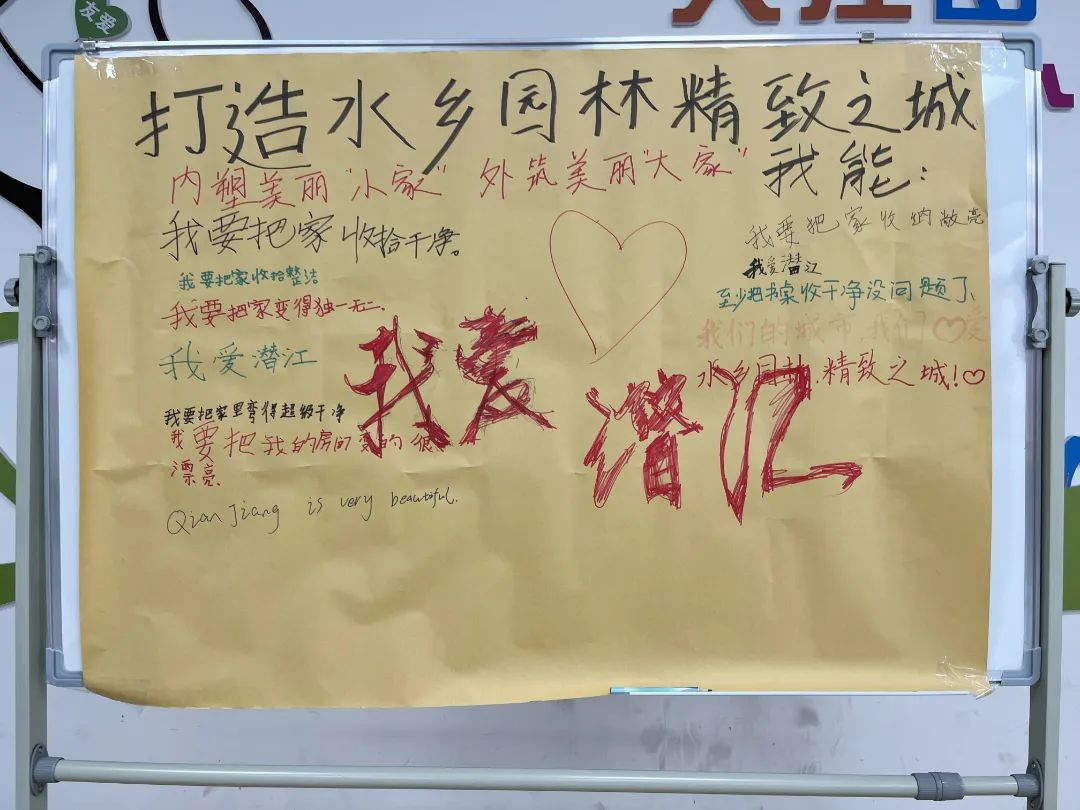 友爱
打造水乡园林精致之城
我能:
内塑美丽"小家" 外筑美丽"大家"
我要把家收拾干净。
我要把家收拾整洁
我要把家变得独一无二.
我爱潜江
我要把家里弯得超级干净
我要把我的房间变的很
漂亮.
Qian Jiang is very beautiful.
我要把家收纳敞亮
我爱潜江
至少把书桌收干净没问题了、
我们的城市,我们♡爱
水乡园林,精致之城!♡
我爱
潜江